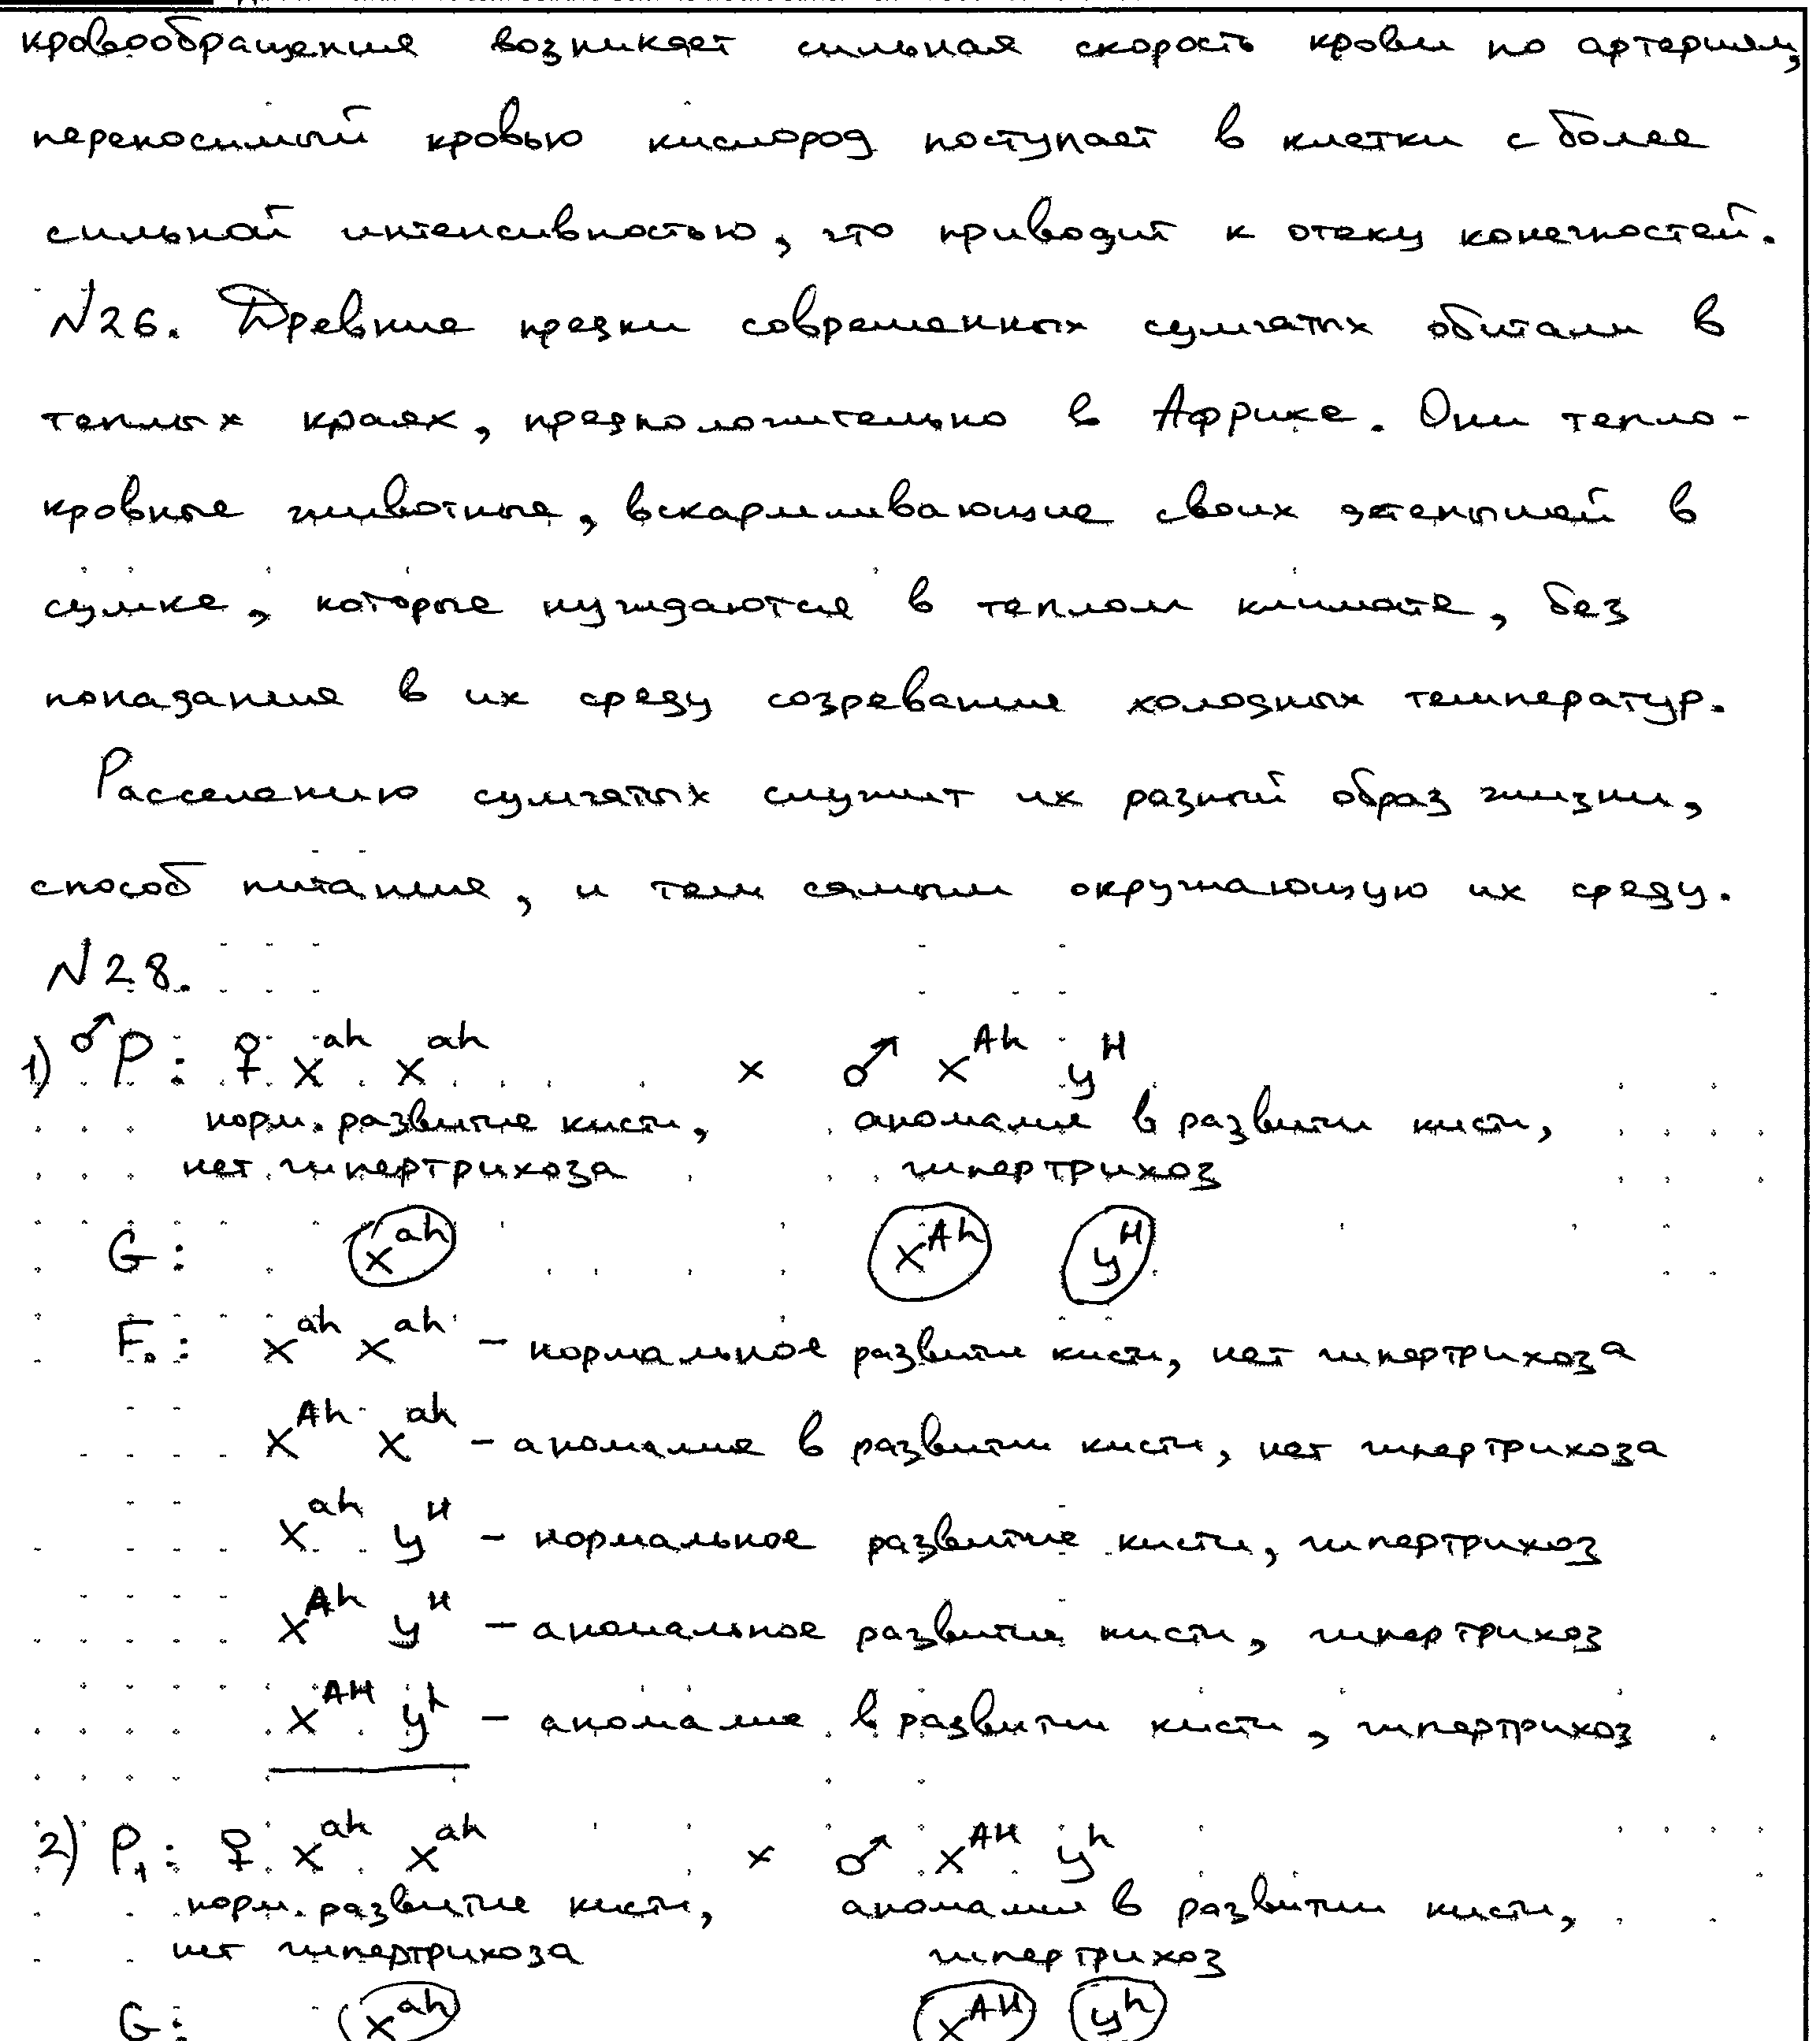 кровообращения возникает сильная скорость крови по артериям,
переносимый кровью кислород поступает в клетки с более
сильной интенсивностью, что приводит к отеку конечностей.
№26. Древние предки современных сумчатых обитали в
теплых краях, предположительно в Африке. Они тепло-
кровные животные, вскармливающие своих детенышей в
сумке, которые нуждаются в теплом климате, без
попадания в их среду созревания холодных температур.
Расселению сумчатых служит их разный образ жизни,
способ питания, и тем самым окружающую их среду.
№28.
1) ♂ P: ♀ X^ah X^ah × ♂ X^Ah y^H
норм. развитие кисти, аномалия в развитии кисти,
нет гипертрихоза гипертрихоз
G: X^ah X^Ah y^H
F₁: X^ah X^ah – нормальное развитие кисти, нет гипертрихоза
X^Ah X^ah – аномалия в развитии кисти, нет гипертрихоза
X^ah y^H – нормальное развитие кисти, гипертрихоз
X^Ah y^H – аномальное развитие кисти, гипертрихоз
X^AH y^h – аномалия в развитии кисти, гипертрихоз
2) P₁: ♀ X^ah X^ah × ♂ X^AH y^h
норм. развитие кисти, аномалия в развитии кисти,
нет гипертрихоза гипертрихоз
G: X^ah X^AH y^h